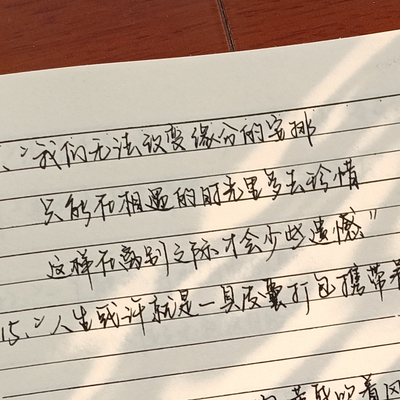 、“我们无法改变缘分的安排
只能在相遇的时光里多去珍惜
这样在离别之际才会少些遗憾”
15、“人生或许就是一具皮囊打包携带着
吹着风